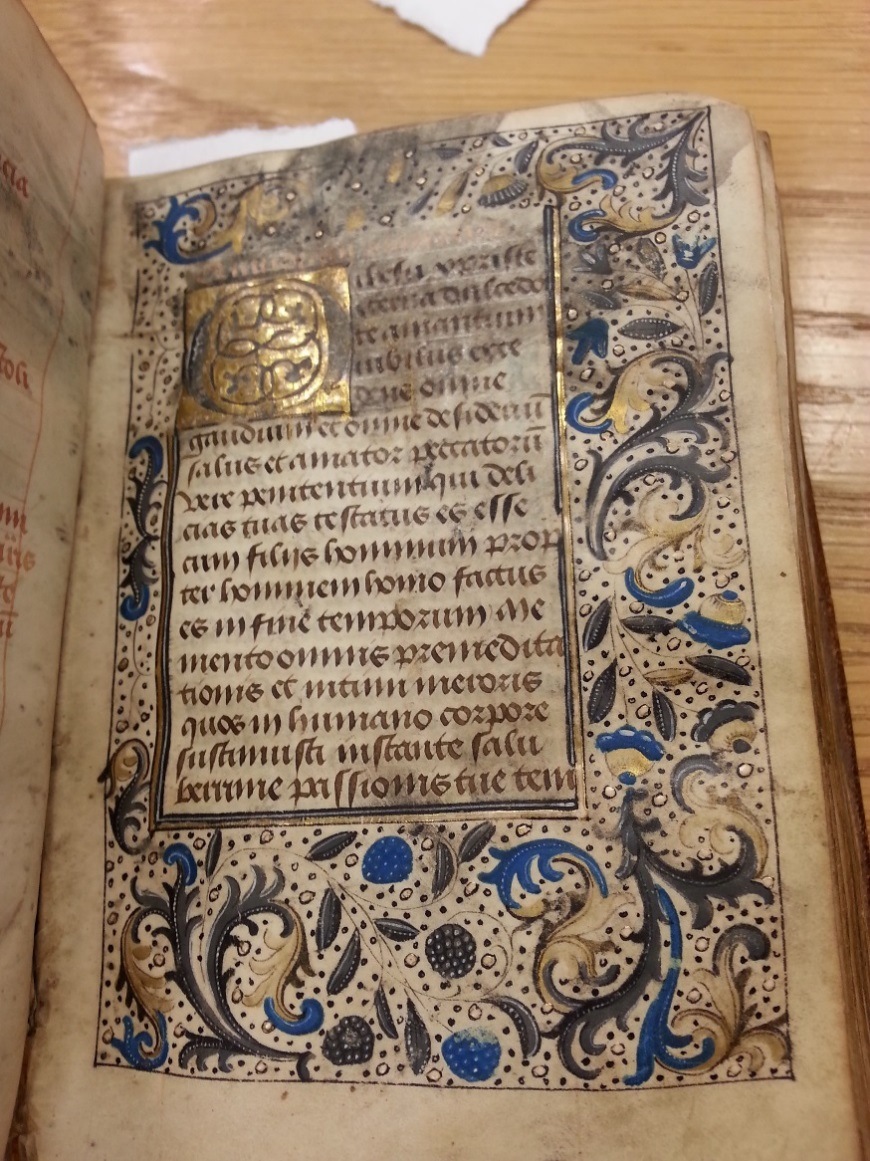 cia
toli
O ihesu xpriste
eterna dulcedo
te amantium
iubilus exce
dens omne
gaudium et omne desideriū
salus et amator peccatorū
vere penitentium qui deli
cias tuas testatus es esse
cum filijs hominum prop
ter hominem homo factus
es in fine temporum Me
mento omnis premedita
tionis et intimi meroris
quos in humano corpore
sustinuisti instante salu
berrime passionis tue tem